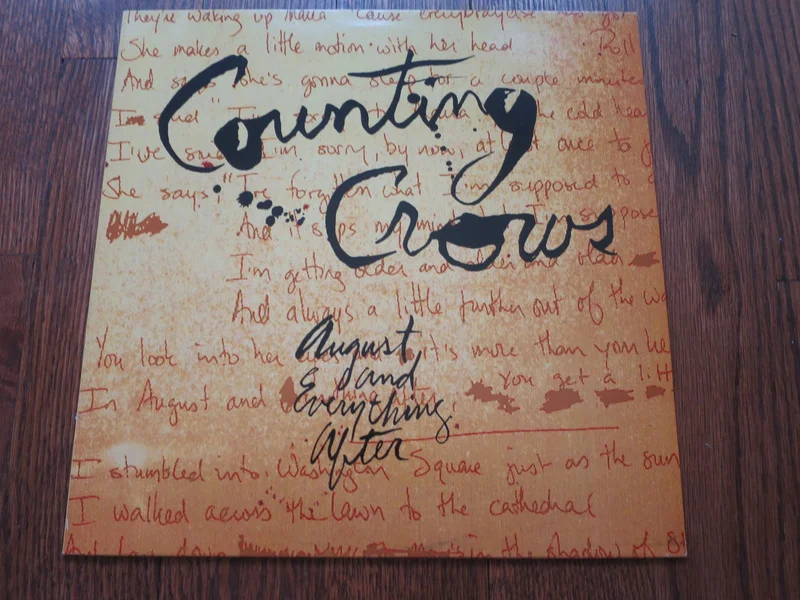 They're waking up Maria 'cause everybody else
She makes a little motion with her head Roll
And says she's gonna sleep for a couple minutes
Counting
I've I'm sorry, by now, at once to
She says, "I've forgotten what I'm supposed to
Crows
And it slips my
I'm getting older and older and older
And always a little further out of the wa
You look into her it's more than you he
August
and
Everything
After
In August and You get a litt
I stumbled into Washington Square just as the sun
I walked across the lawn to the cathedral
in the shadow of